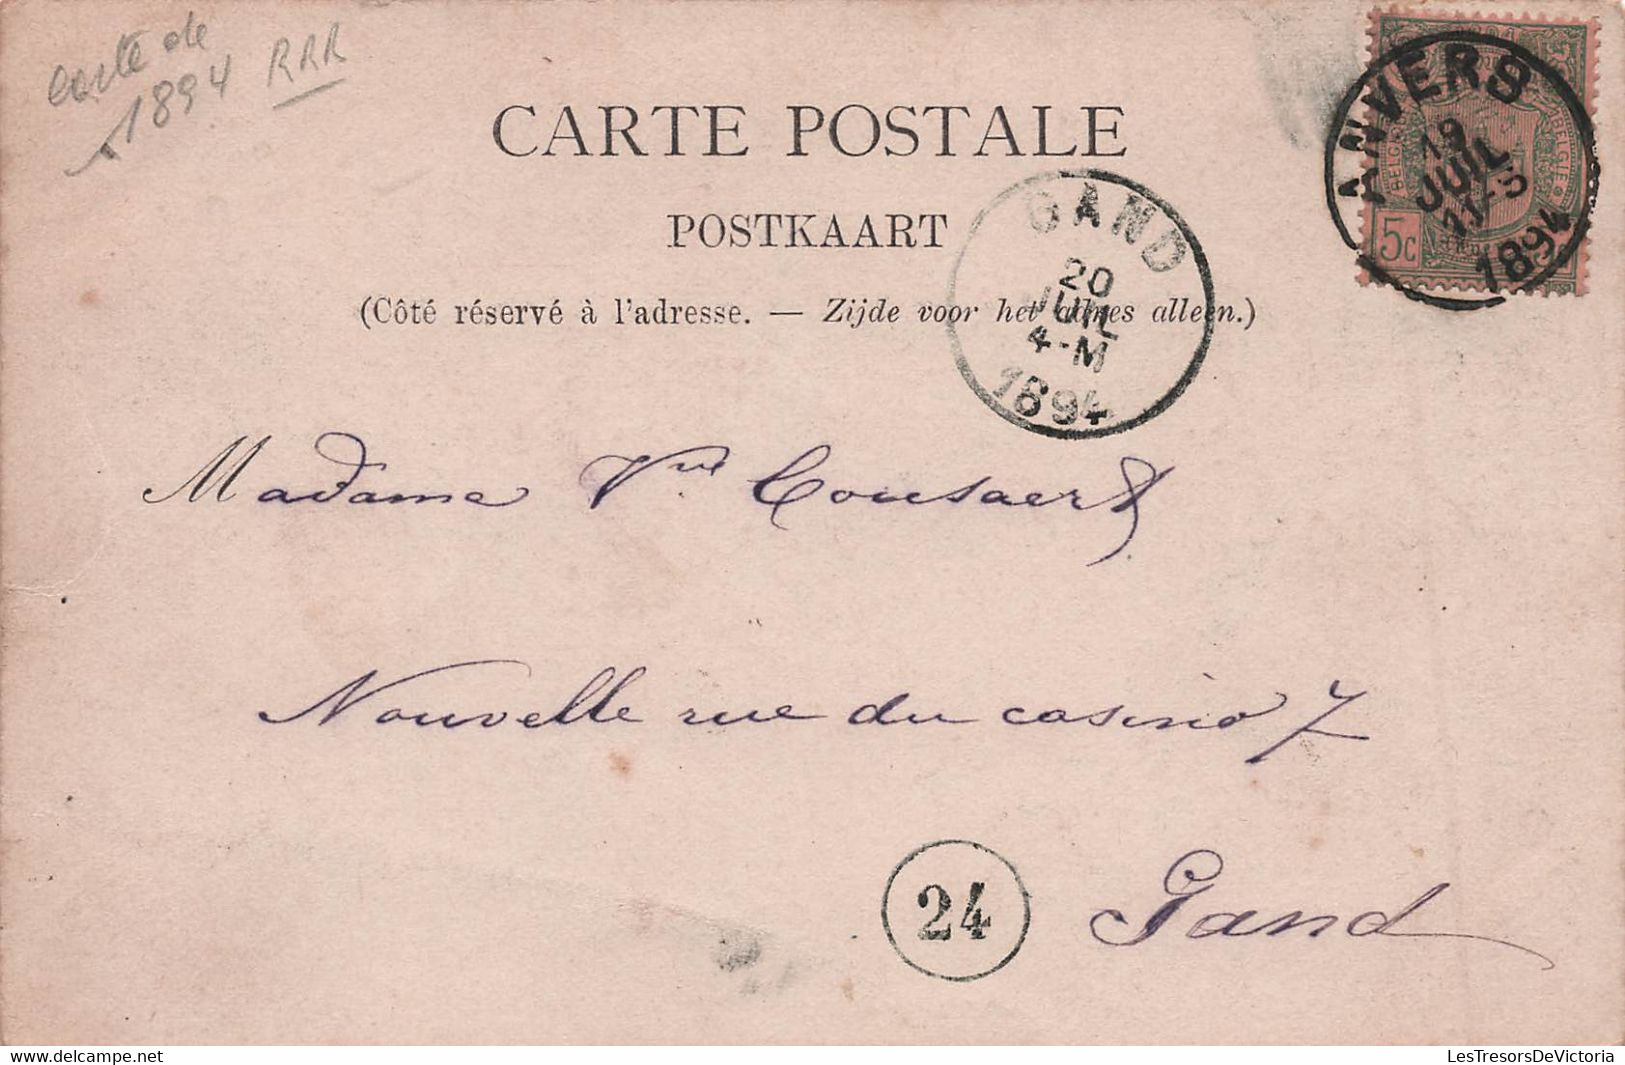 carte de
1894 RRR
CARTE POSTALE
POSTKAART
(Côté réservé à l'adresse. — Zijde voor het adres alleen.)
ANVERS
19
JUIL
11-S
1894
5c
BELGIQUE
BELGIË
GAND
20
JUIL
4-M
1894
Madame Vve Cousaert
Nouvelle rue du casino 7
24
Gand
delcampe.net
LesTresorsDeVictoria